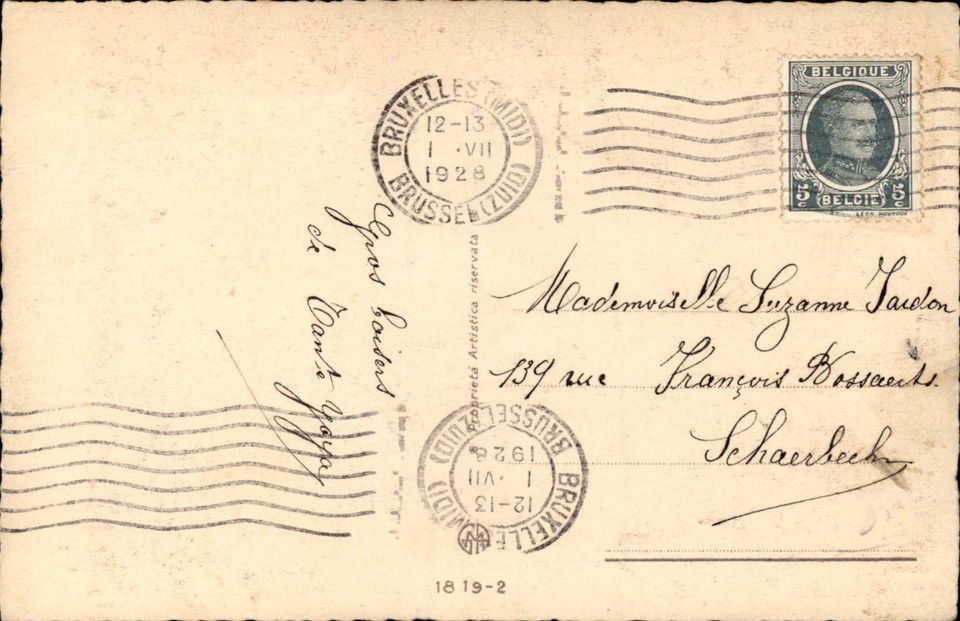 BRUXELLES (MIDI)
12-13
1 ·VII
1928
BRUSSEL (ZUID)
BELGIQUE
5c 5c
BELGIE
LEON HOUYOUX
Gros baisers
de Tante Yaya
Proprietà Artistica riservata
Mademoiselle Suzanne Jardon
139 rue François Bossaerts.
Schaerbeek
BRUXELLES (MIDI)
12-13
1 ·VII
1928
BRUSSEL (ZUID)
1819-2